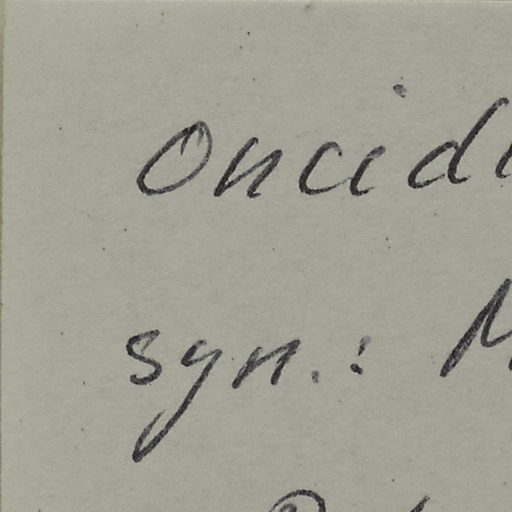 Oncid
syn.: M